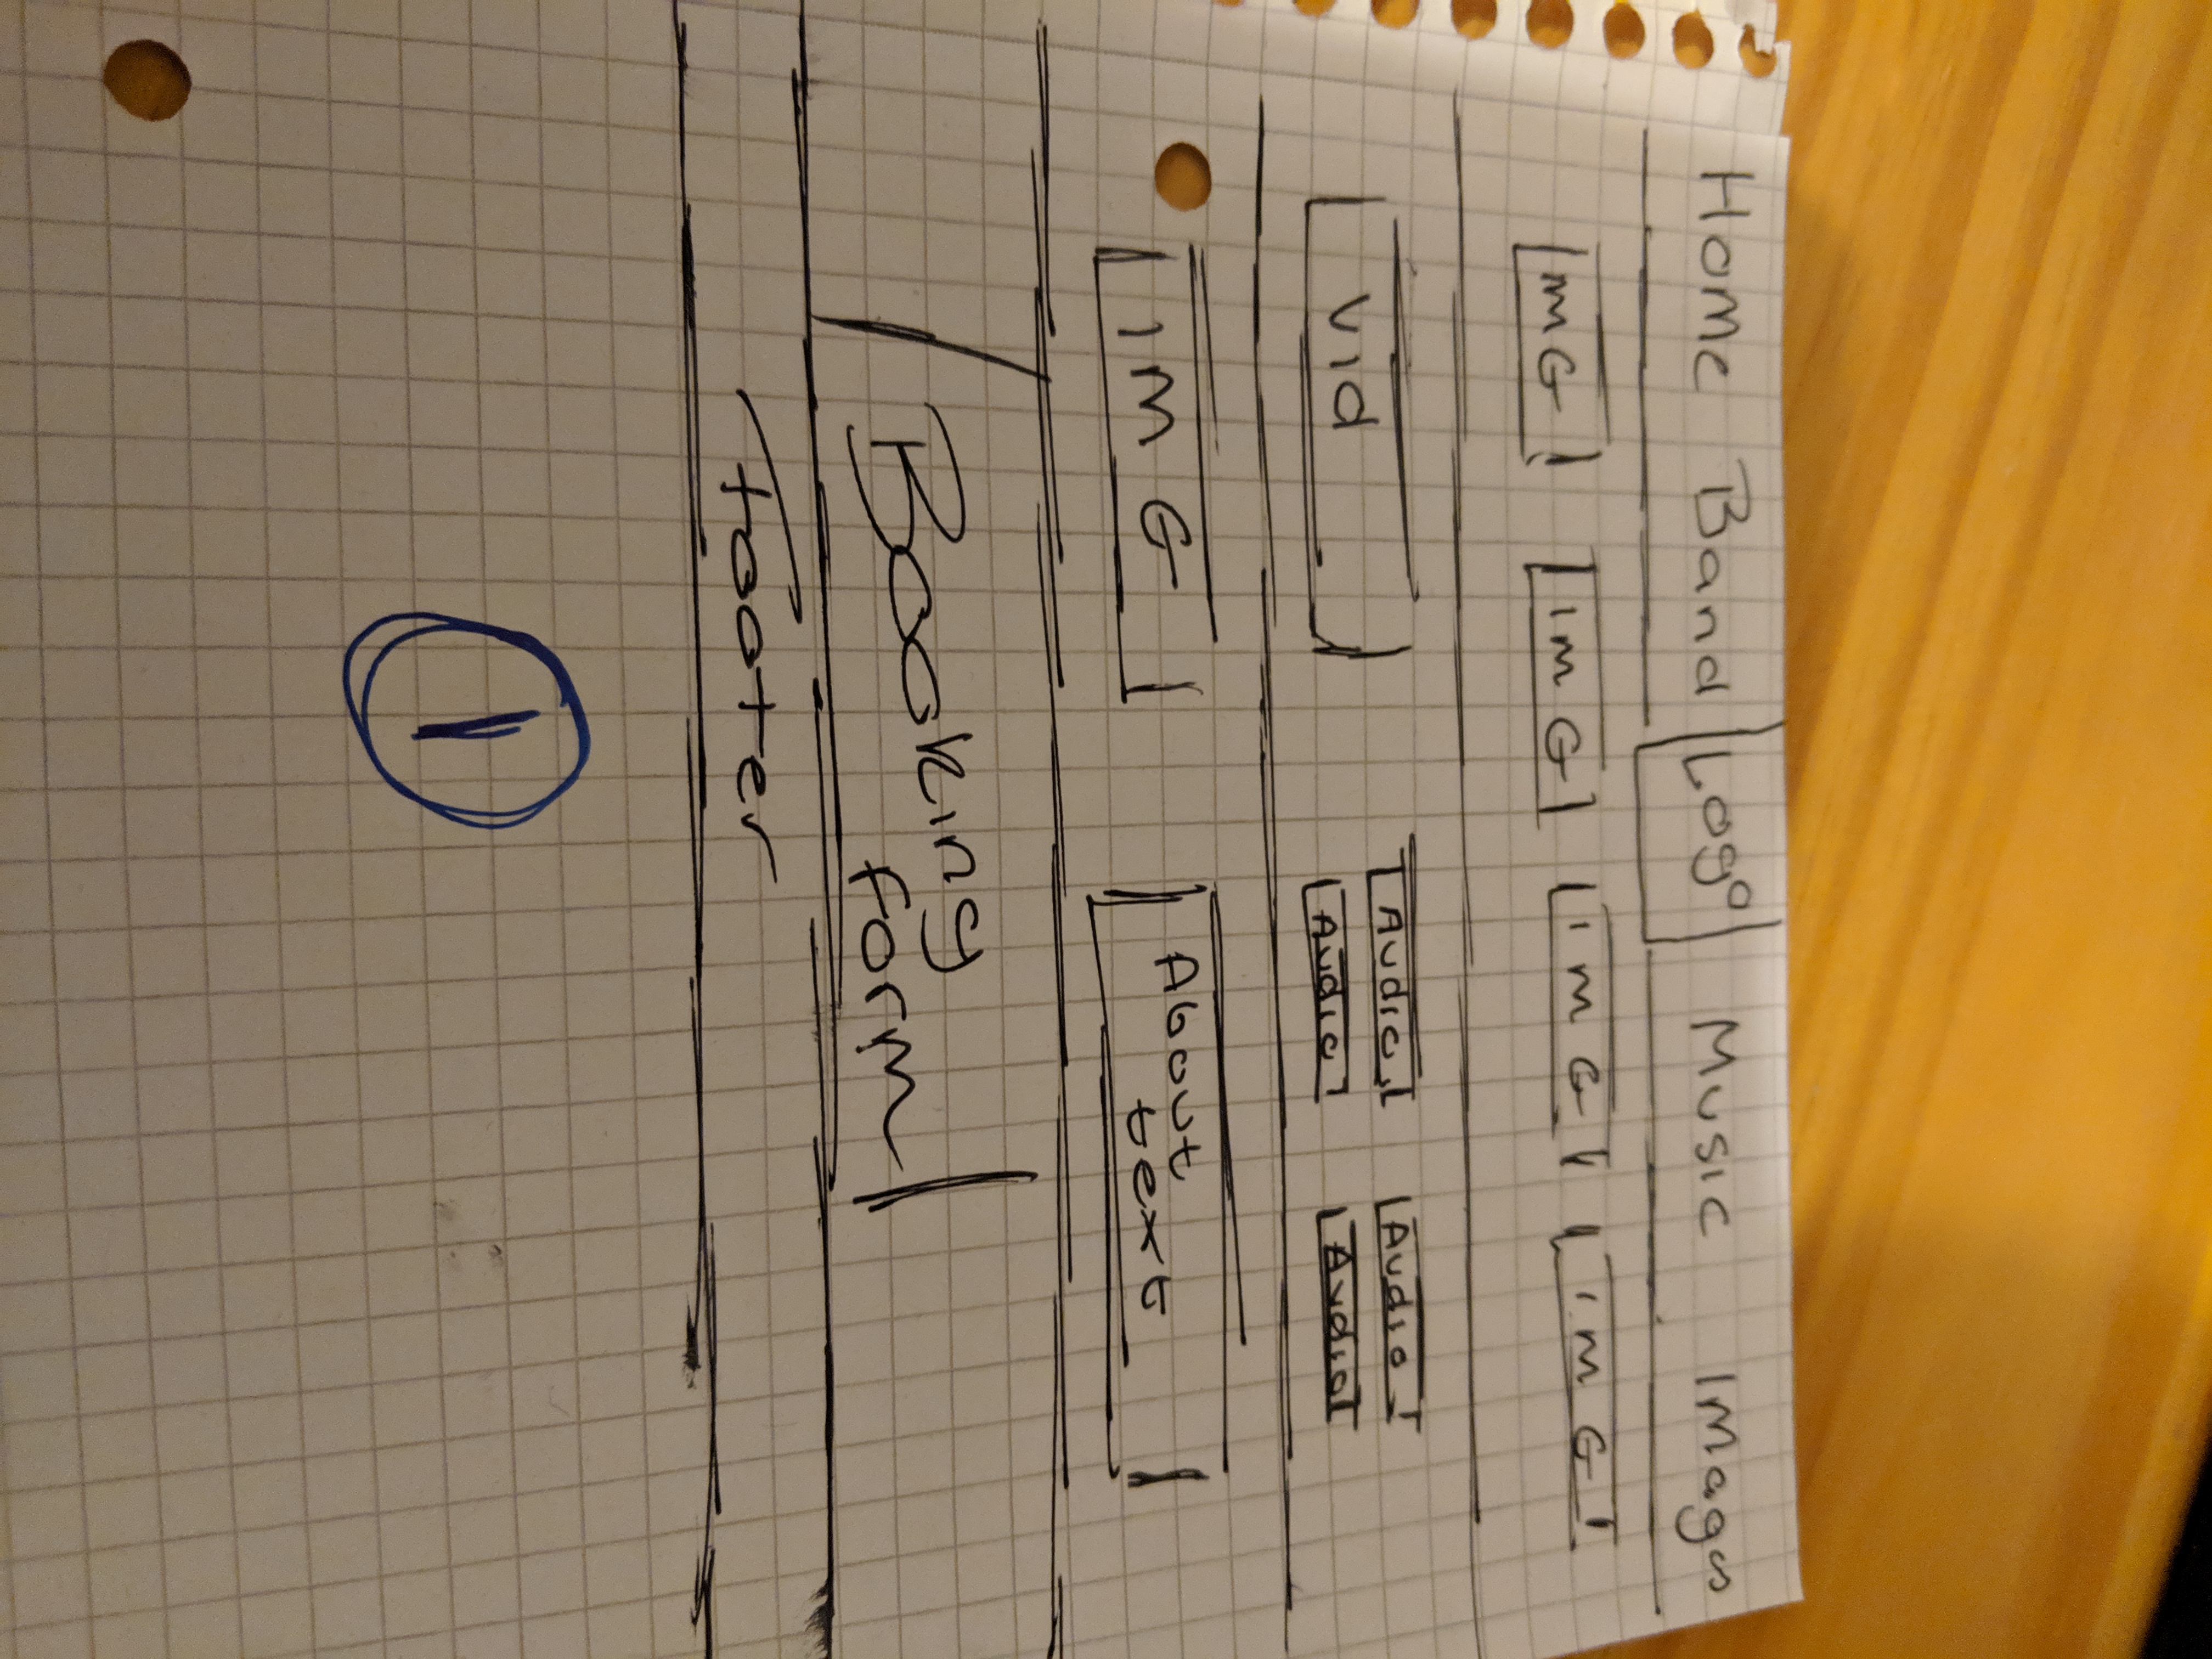 Home Band Logo Music Images
IMG IMG IMG IMG
Vid Audio Audio
Audio Audio
IMG About
text
Booking
form
footer
1